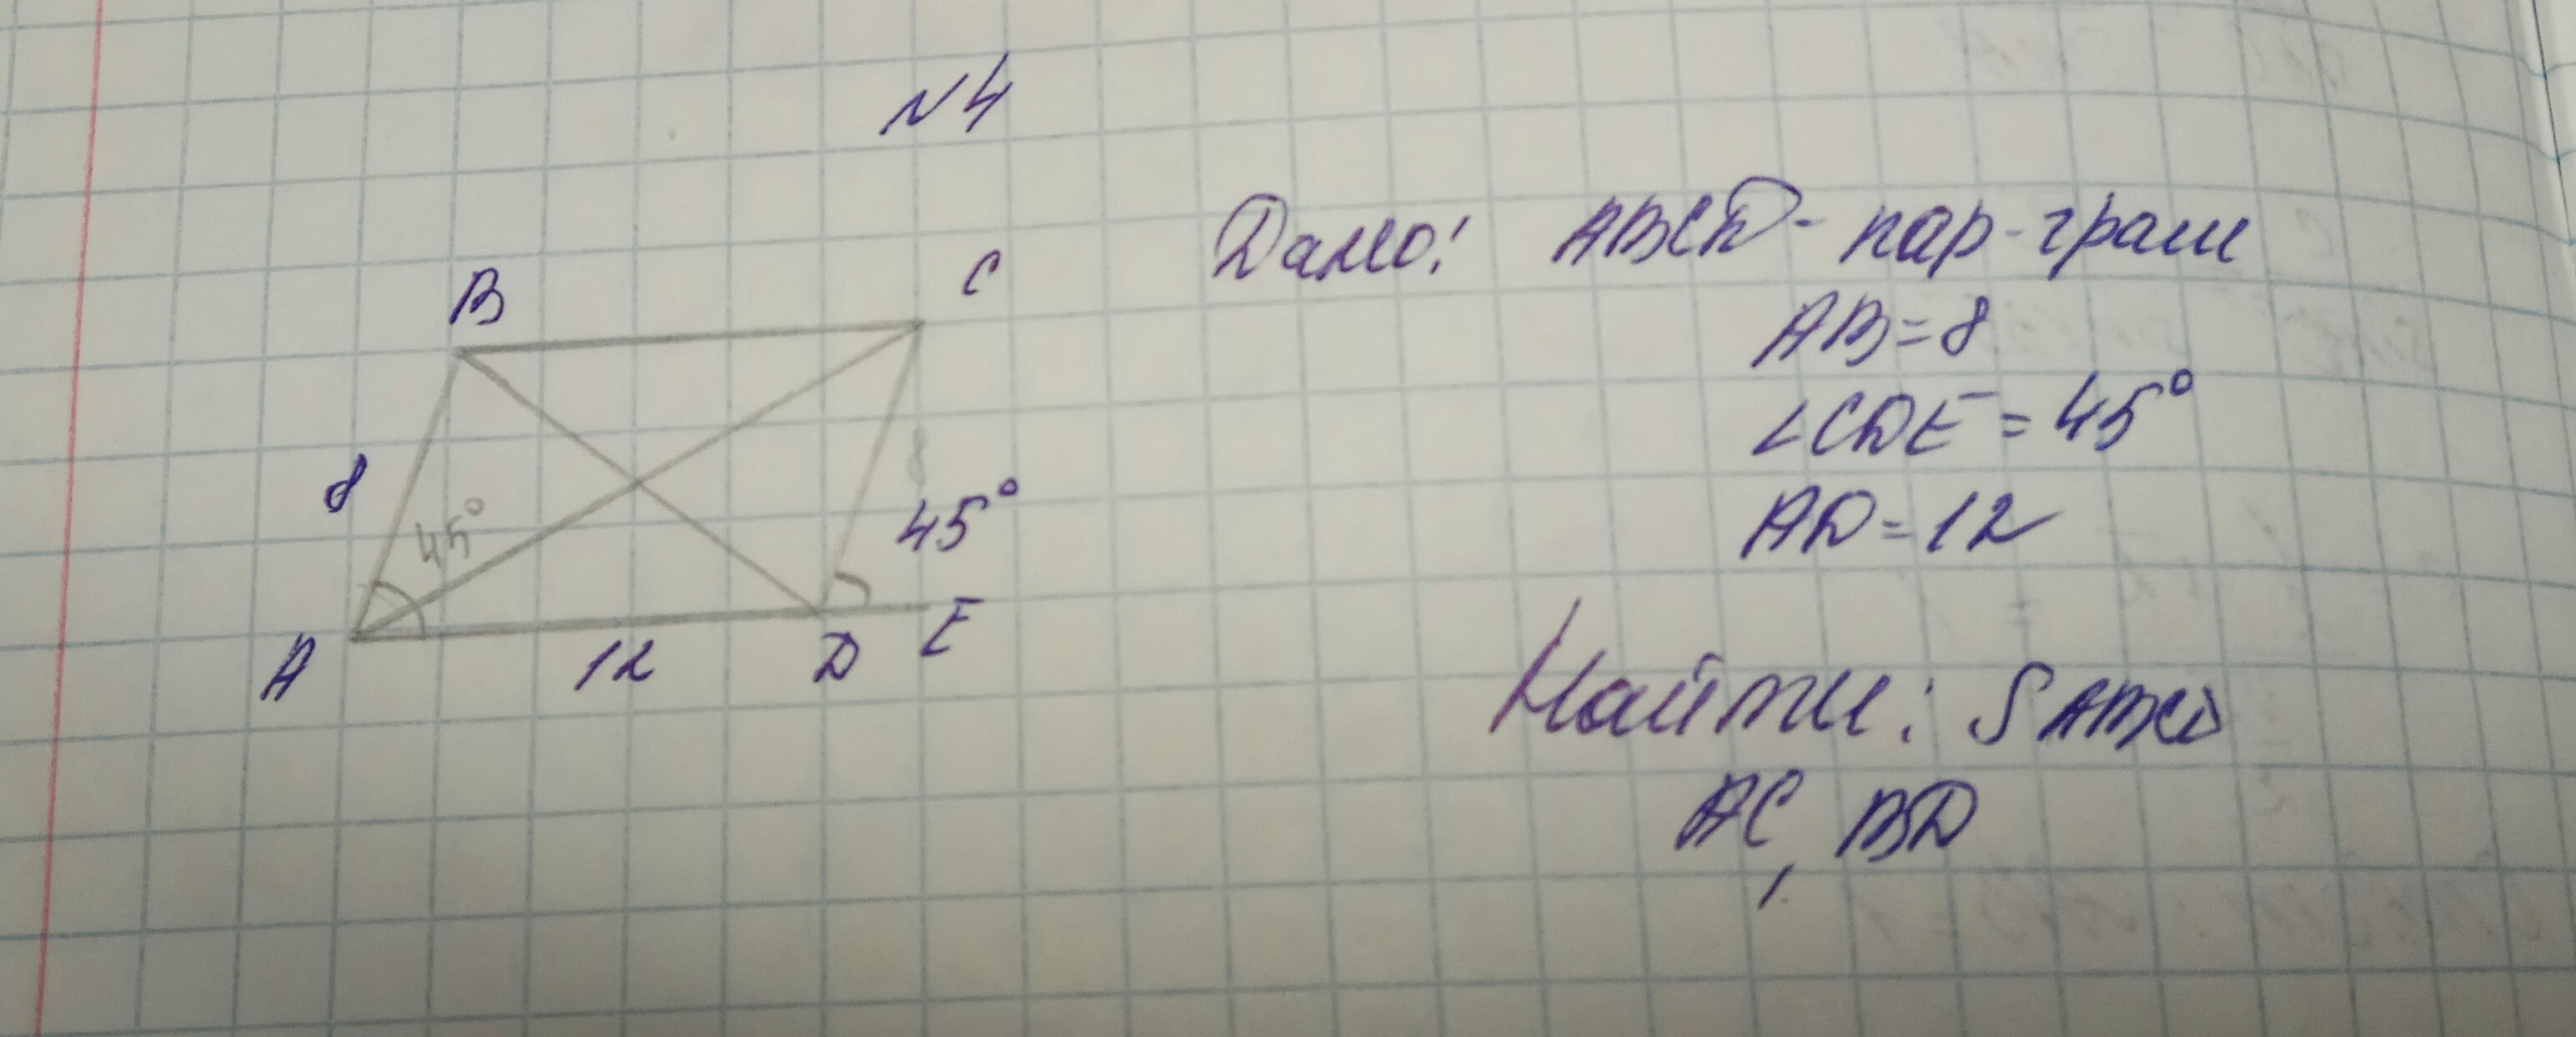 N4
Дано: ABCD - пар-грам
AB=8
∠CDE = 45°
AD=12
Найти: S ABCD
AC, BD
B
C
8
45°
8
45°
A
12
D
E